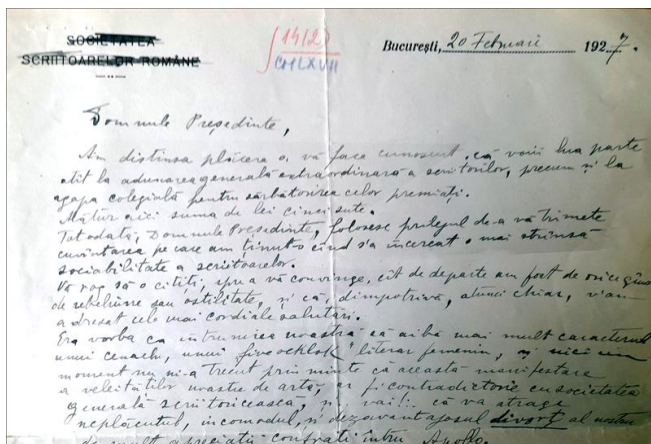 SOCIETATEA
SCRIITOARELOR ROMÂNE
14(2)
CMLXVII
București, 20 Februari 1927.
Domnule Președinte,
Am distinsa plăcere a vă face cunoscut, că voiu lua parte
atît la adunarea generală extraordinară a scriitorilor, precum și la
agapa colegială pentru sărbătorirea celor premiați.
Alătur aici suma de lei cinci sute.
Totodată, Domnule Președinte, folosesc prilejul de-a vă trimete
cuvântarea pe care am ținut-o cînd s'a încercat o mai strînsă
sociabilitate a scriitoarelor.
Vă rog să o citiți, spre a vă convinge, cît de departe am fost de orice gînd
de rebeliune sau ostilitate, și că, dimpotrivă, atunci chiar, v'am
adresat cele mai cordiale salutări.
Era vorba ca întrunirea noastră să aibă mai mult caracterul
unui cenaclu, unui fiveocklok literar femenin, și nici un
moment nu mi-a trecut prin minte că această manifestare
a veleităților noastre de artă, ar fi contradictorie cu societatea
generală scriitoricească, și vai!.. că va atrage
neplăcutul, incomodul, și dezavantajosul divorț al nostru
de mult apreciații confrați întru Apollo.